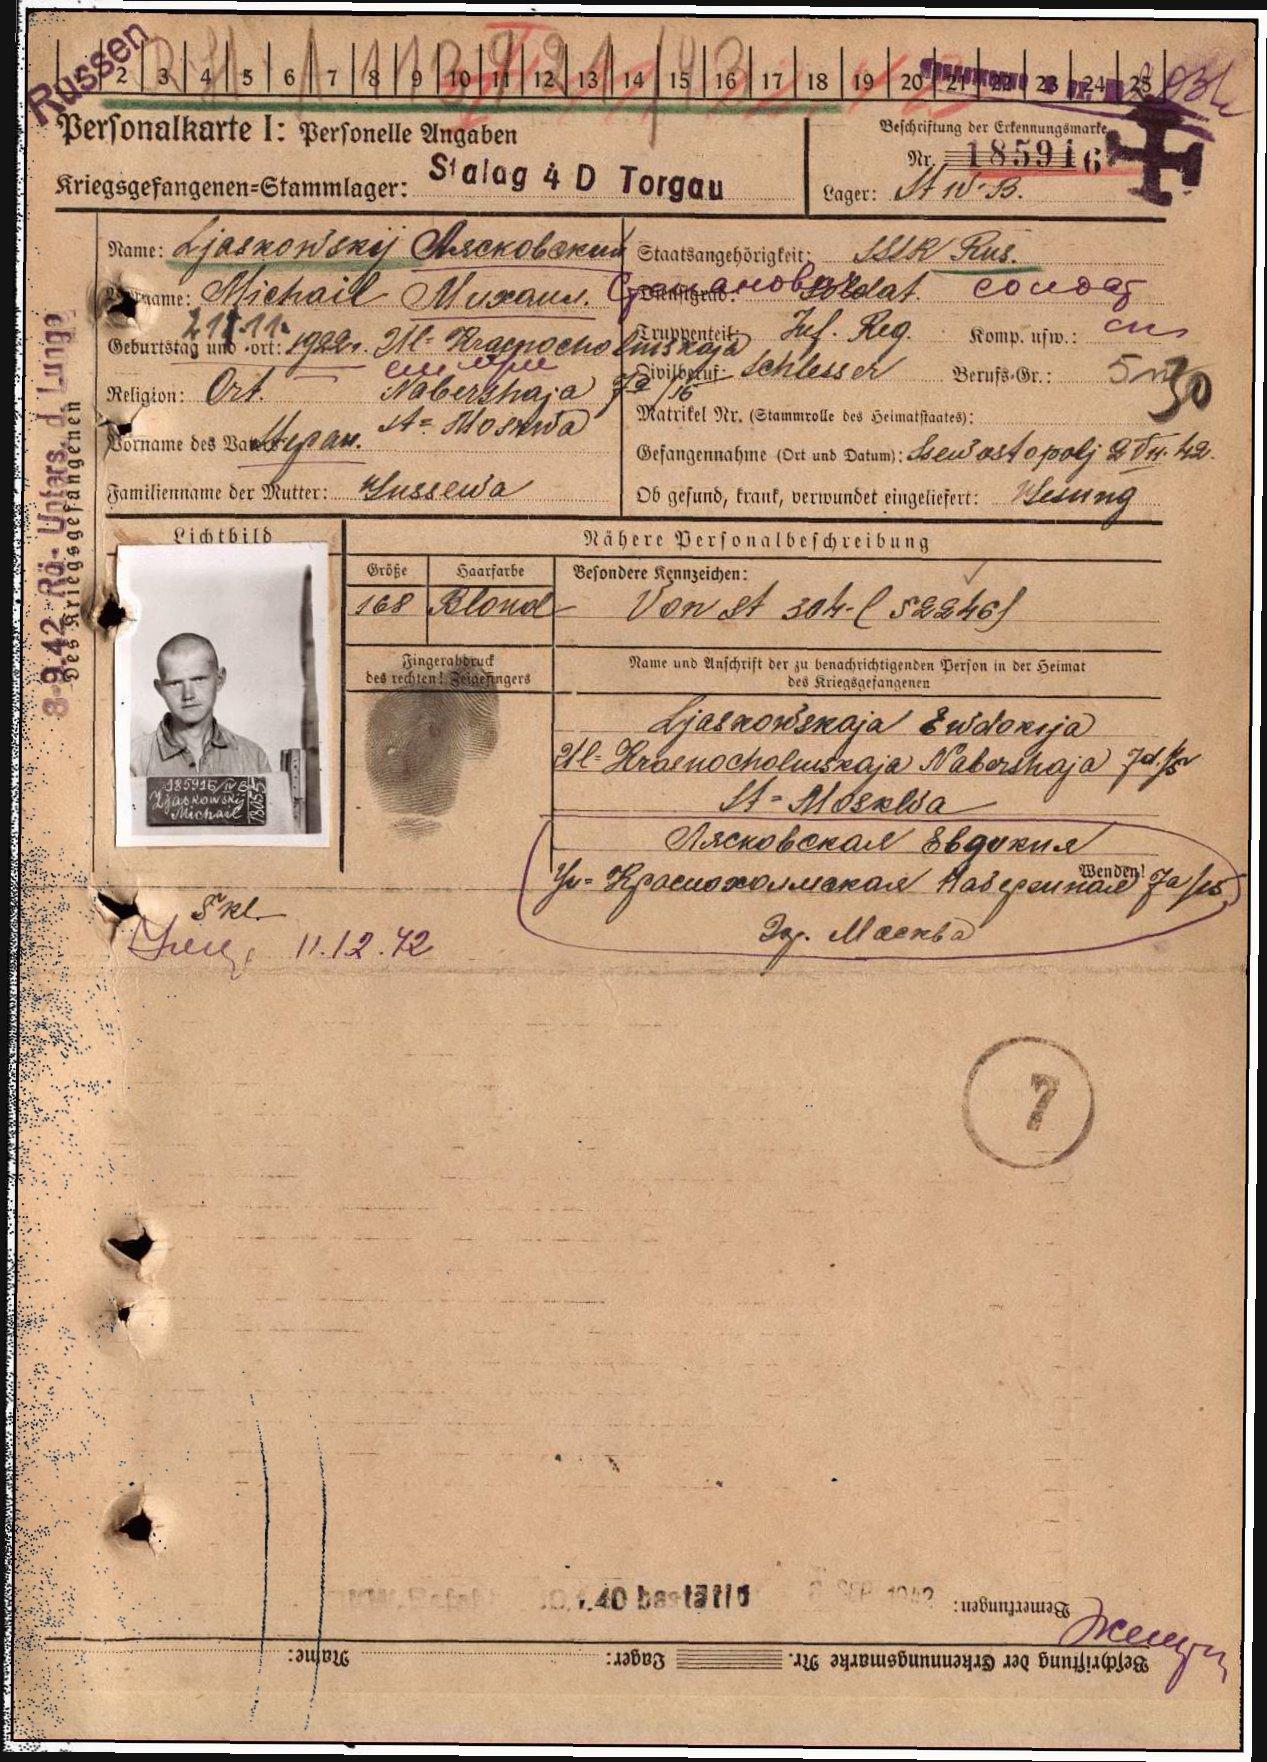 Russen
2 3 4 5 6 7 8 9 10 11 12 13 14 15 16 17 18 19 20 21 22 23 24 25
Personalkarte I: Personelle Angaben
Beschriftung der Erkennungsmarke
Nr. 185916
Kriegsgefangenen=Stammlager: Stalag 4 D Torgau
Lager: St IV-B.
Name: Ljaskowskij Лясковский
Staatsangehörigkeit: SSSR Rus.
Vorname: Michail Михаил. Степанович
Dienstgrad: Soldat. солдат
Geburtstag und -ort: 21.11. 1922. Ul= Krasnocholmskaja
Truppenteil: Inf. Reg. Komp. usw.:
Nabershaja 7a/16
Religion: Ort.
Zivilberuf: Schlesser Berufs-Gr.:
St= Moskwa
Matrikel Nr. (Stammrolle des Heimatstaates):
Vorname des Vaters: Stepan.
Gefangennahme (Ort und Datum): Ssewastopolj 2.VII.42.
Familienname der Mutter: Hussewa
Ob gesund, krank, verwundet eingeliefert: Gesung
8.9.42 Rö.- Unters. d. Lunge
Des Kriegsgefangenen
Lichtbild
Nähere Personalbeschreibung
Größe Haarfarbe Besondere Kennzeichen:
168 Blond - Von St 304-(52246)
Fingerabdruck
des rechten! Zeigefingers
Name und Anschrift der zu benachrichtigenden Person in der Heimat
des Kriegsgefangenen
Ljaskowskaja Ewdokija
Ul= Krasnocholmskaja Nabershaja 7a/15
St= Moskwa
185916/IV B
Ljaskowskij
Michail
Лясковская Евдокия
Ул= Краснохолмская Набережная 7a/15
Wenden!
Гор. Москва
5 kl.
11.12.42
7
Bemerkungen:
Beschriftung der Erkennungsmarke Nr. Lager: Name: